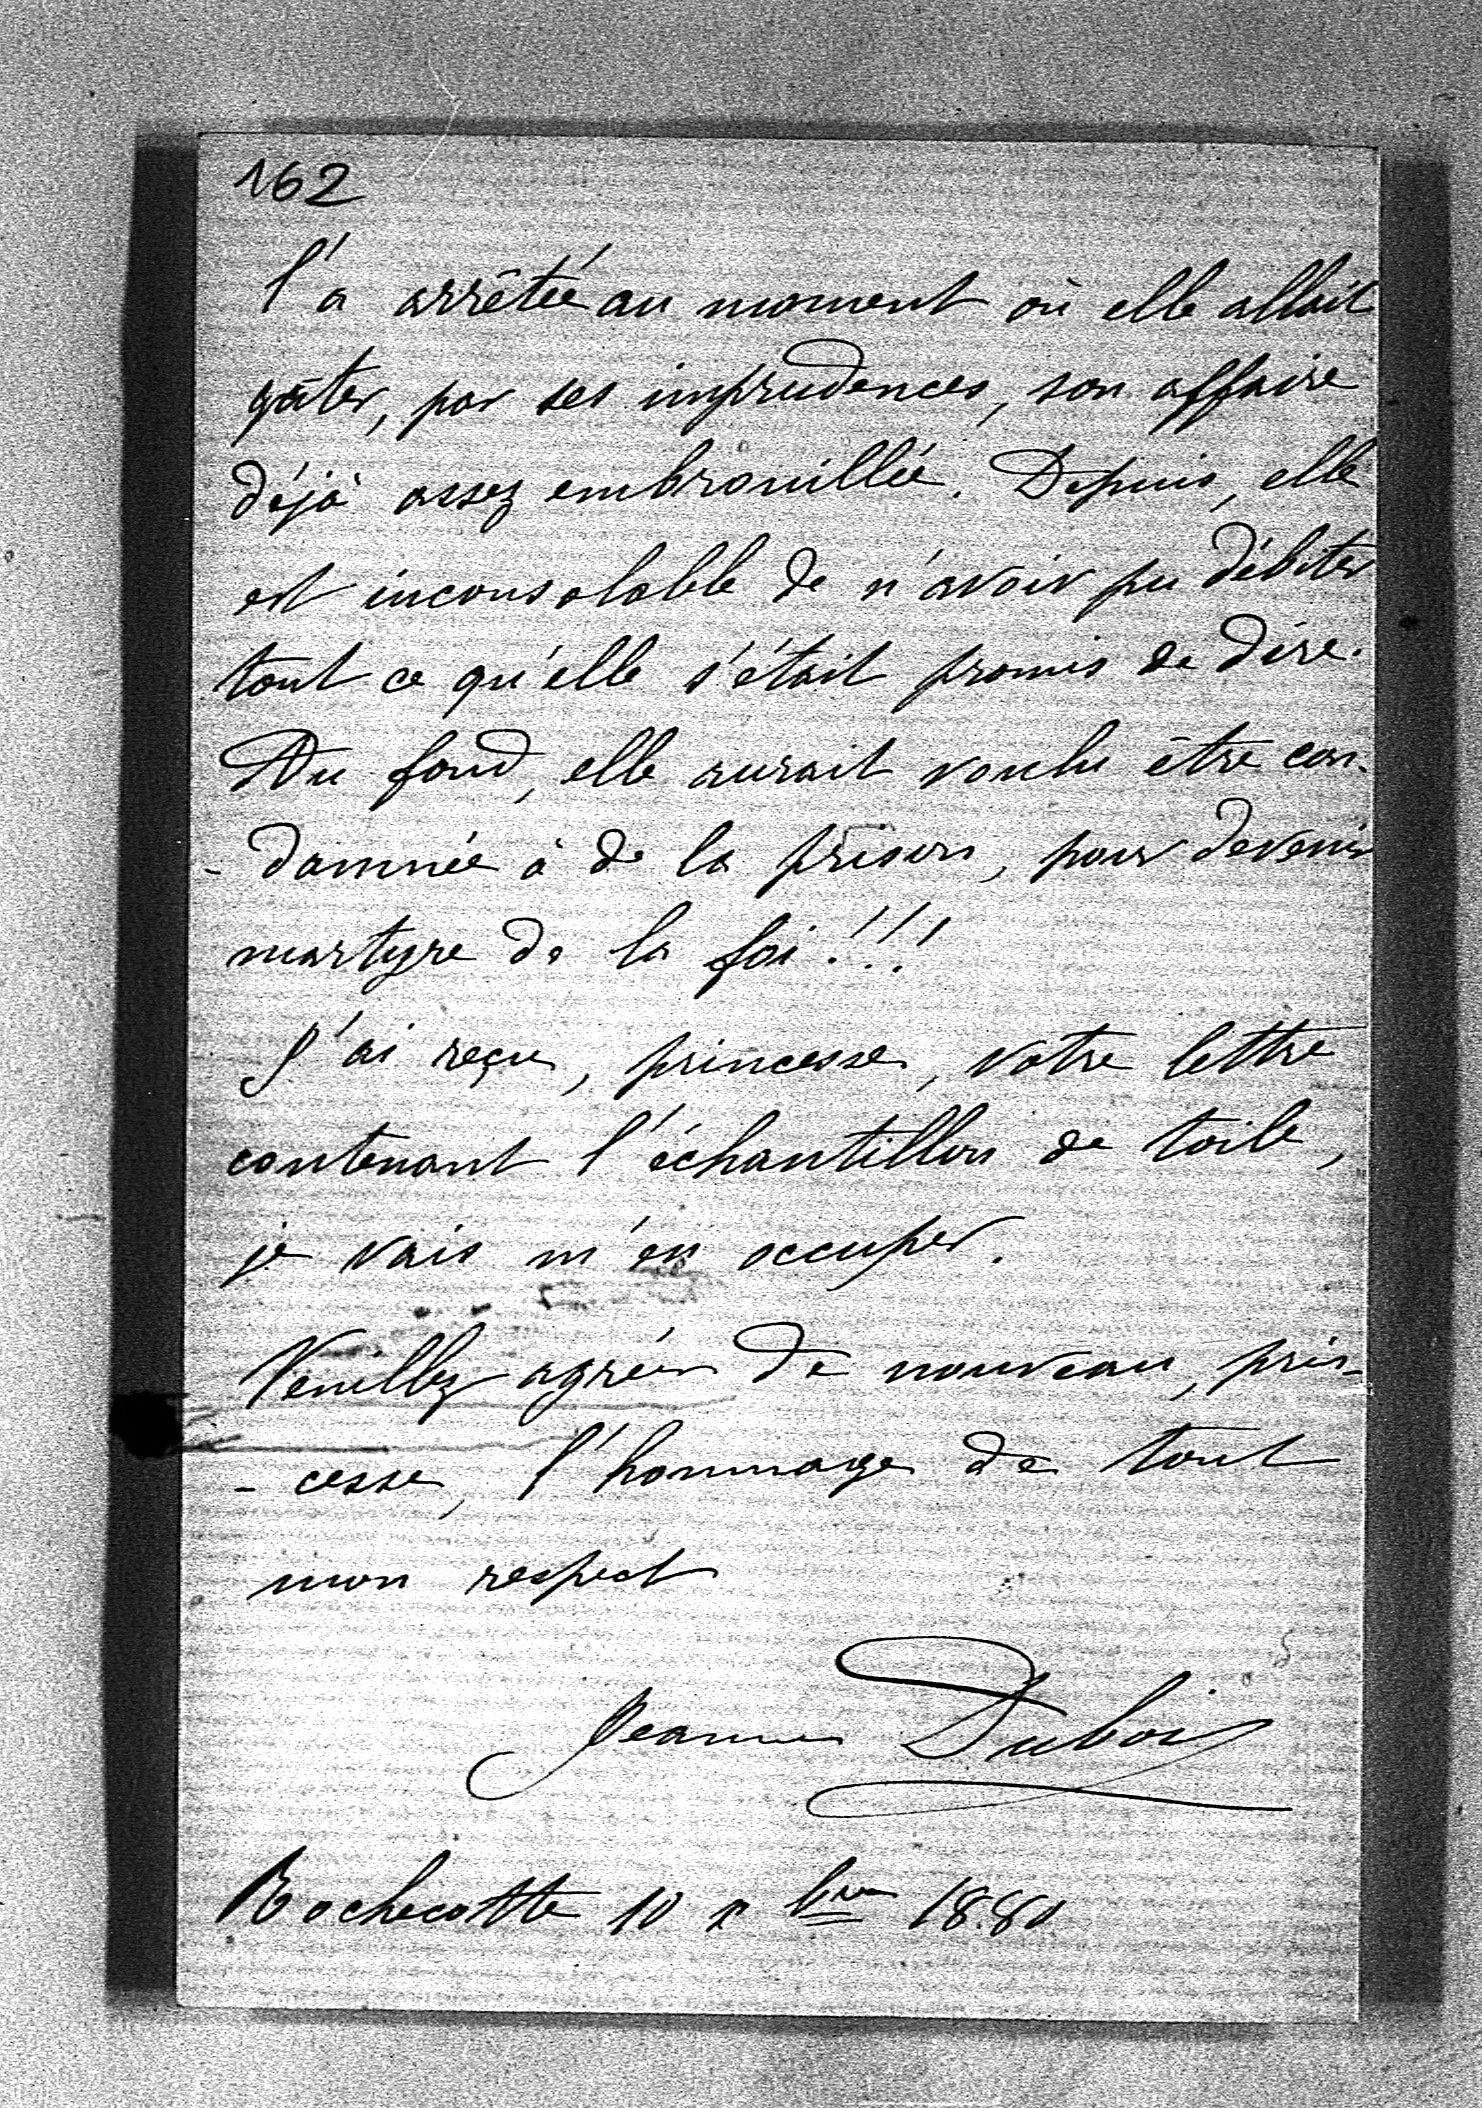 162
l'a arrêtée au moment où elle allait
gâter, par ses imprudences, son affaire
déjà assez embrouillée. Depuis, elle
est inconsolable de n'avoir pu débiter
tout ce qu'elle s'était promis de dire.
Au fond, elle aurait voulu être con-
- damnée à de la prison, pour devenir
martyre de la foi !!!
J'ai reçu, princesse, votre lettre
contenant l'échantillon de toile,
je vais m'en occuper.
Veuillez agréer de nouveau, prin-
- cesse, l'hommage de tout
mon respect
Jeanne Dubois
Rochecotte 10 x bre 1880